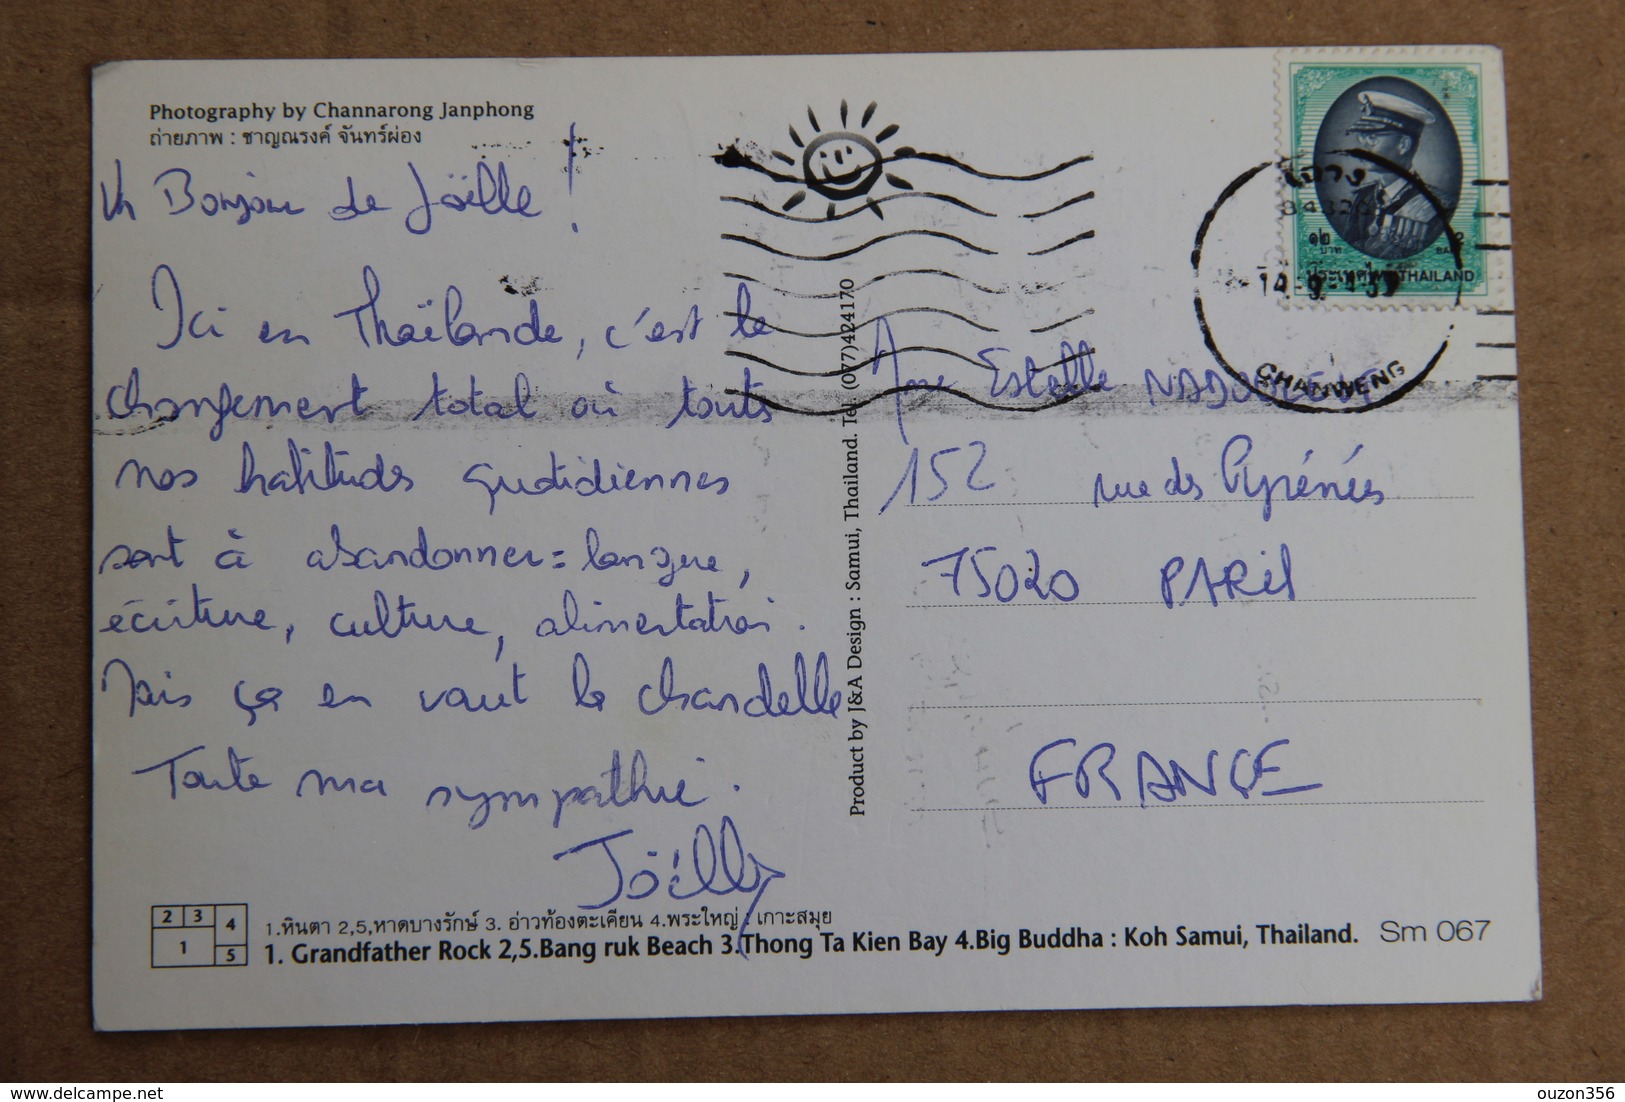 Photography by Channarong Janphong
ถ่ายภาพ : ชาญณรงค์ จันทร์ผ่อง
Un Bonjour de Joëlle !
Ici en Thaïlande, c'est le
changement total où touts
nos habitudes quotidiennes
sont à abandonner = langue,
écriture, culture, alimentation.
Mais ça en vaut la chandelle
Toute ma sympathie.
Joëlle
Product by J&A Design : Samui, Thailand. Tel. (077)424170
๑๒
บาท
ประเทศไทย THAILAND
CHAUWENG
Estelle
152 rue des Pyrénées
75020 PARIS
FRANCE
2 3 4
1 5
1.หินตา 2,5,หาดบางรักษ์ 3. อ่าวท้องตะเคียน 4.พระใหญ่ : เกาะสมุย
1. Grandfather Rock 2,5.Bang ruk Beach 3.Thong Ta Kien Bay 4.Big Buddha : Koh Samui, Thailand. Sm 067
delcampe.net
ouzon356